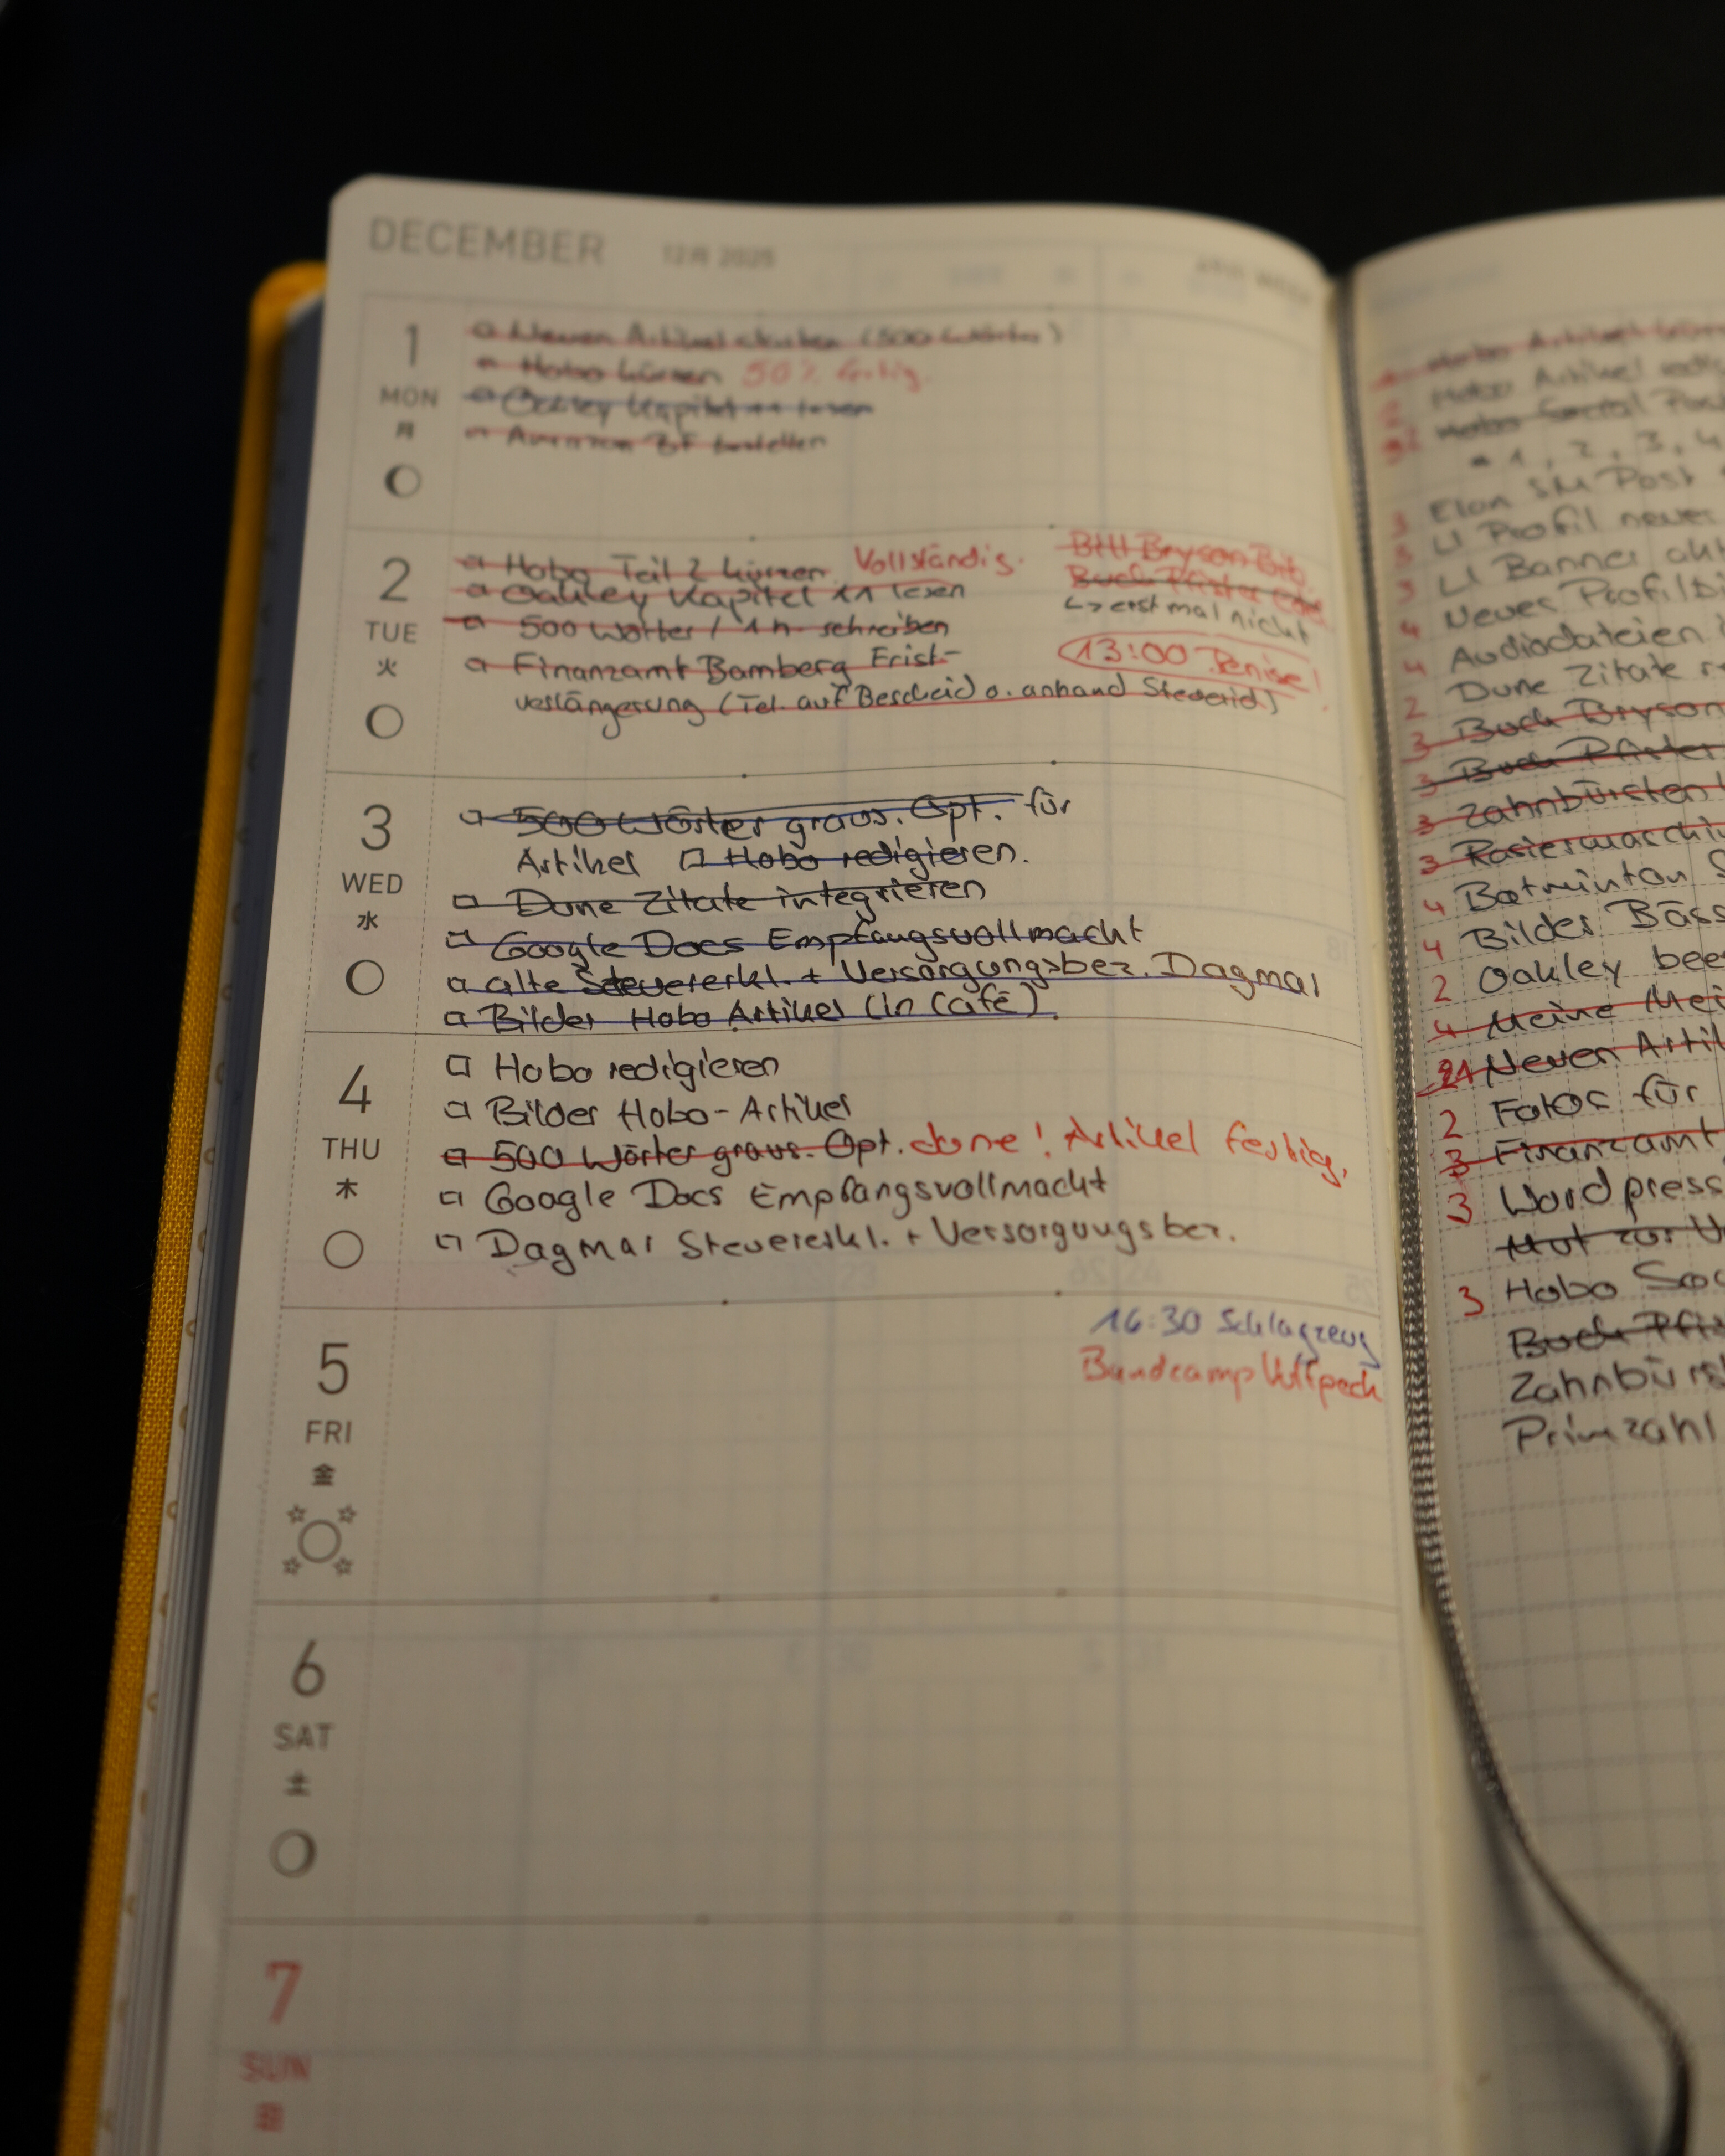 DECEMBER 12月 2025
1
MON
月
Neuen Artikel (500 Wörter)
Hobo kürzen 50% fertig.
Oakley Kapitel 11 lesen
Amazon BF bestellen
2
TUE
火
Hobo Teil 2 kürzen. Vollständig.
Oakley Kapitel 11 lesen
500 Wörter / 1 h. schreiben
Finanzamt Bamberg Frist-
verlängerung (Tel. auf Bescheid o. anhand Steuerid.)
Bryson Bib.
Buch Pfister
↳ erst mal nicht
13:00 Denise!
3
WED
水
500 Wörter graus. Opt. für
Artikel Hobo redigieren.
Dune Zitate integrieren
Google Docs Empfangsvollmacht
alte Steuererkl. + Versorgungsbez. Dagmar
Bilder Hobo Artikel (in Café)
4
THU
木
Hobo redigieren
Bilder Hobo-Artikel
500 Wörter graus. Opt. done! Artikel fertig.
Google Docs Empfangsvollmacht
Dagmar Steuererkl. + Versorgungsber.
5
FRI
金
16:30 Schlagzeug
Bandcamp Vulfpeck
6
SAT
土
7
SUN
日
Hobo Artikel
2 Hobo Artikel
Hobo Social
1, 2, 3, 4
3 Elon SM Post
3 LI Profil neues
3 LI Banner
4 Neues Profilbi
4 Audiodateien
2 Dune Zitate
3 Buch Bryson
3 Buch Pfister
3 Zahnbürsten
3 Rasiermaschi
4 Batminton
4 Bilder Bäss
2 Oakley bee
4 Meine Mei
Neuen Arti
2 Fotos für
3 Finanzamt
3 Wordpress
Mut zur
3 Hobo Soc
Buch Pfi
Zahnbürs
Primzahl